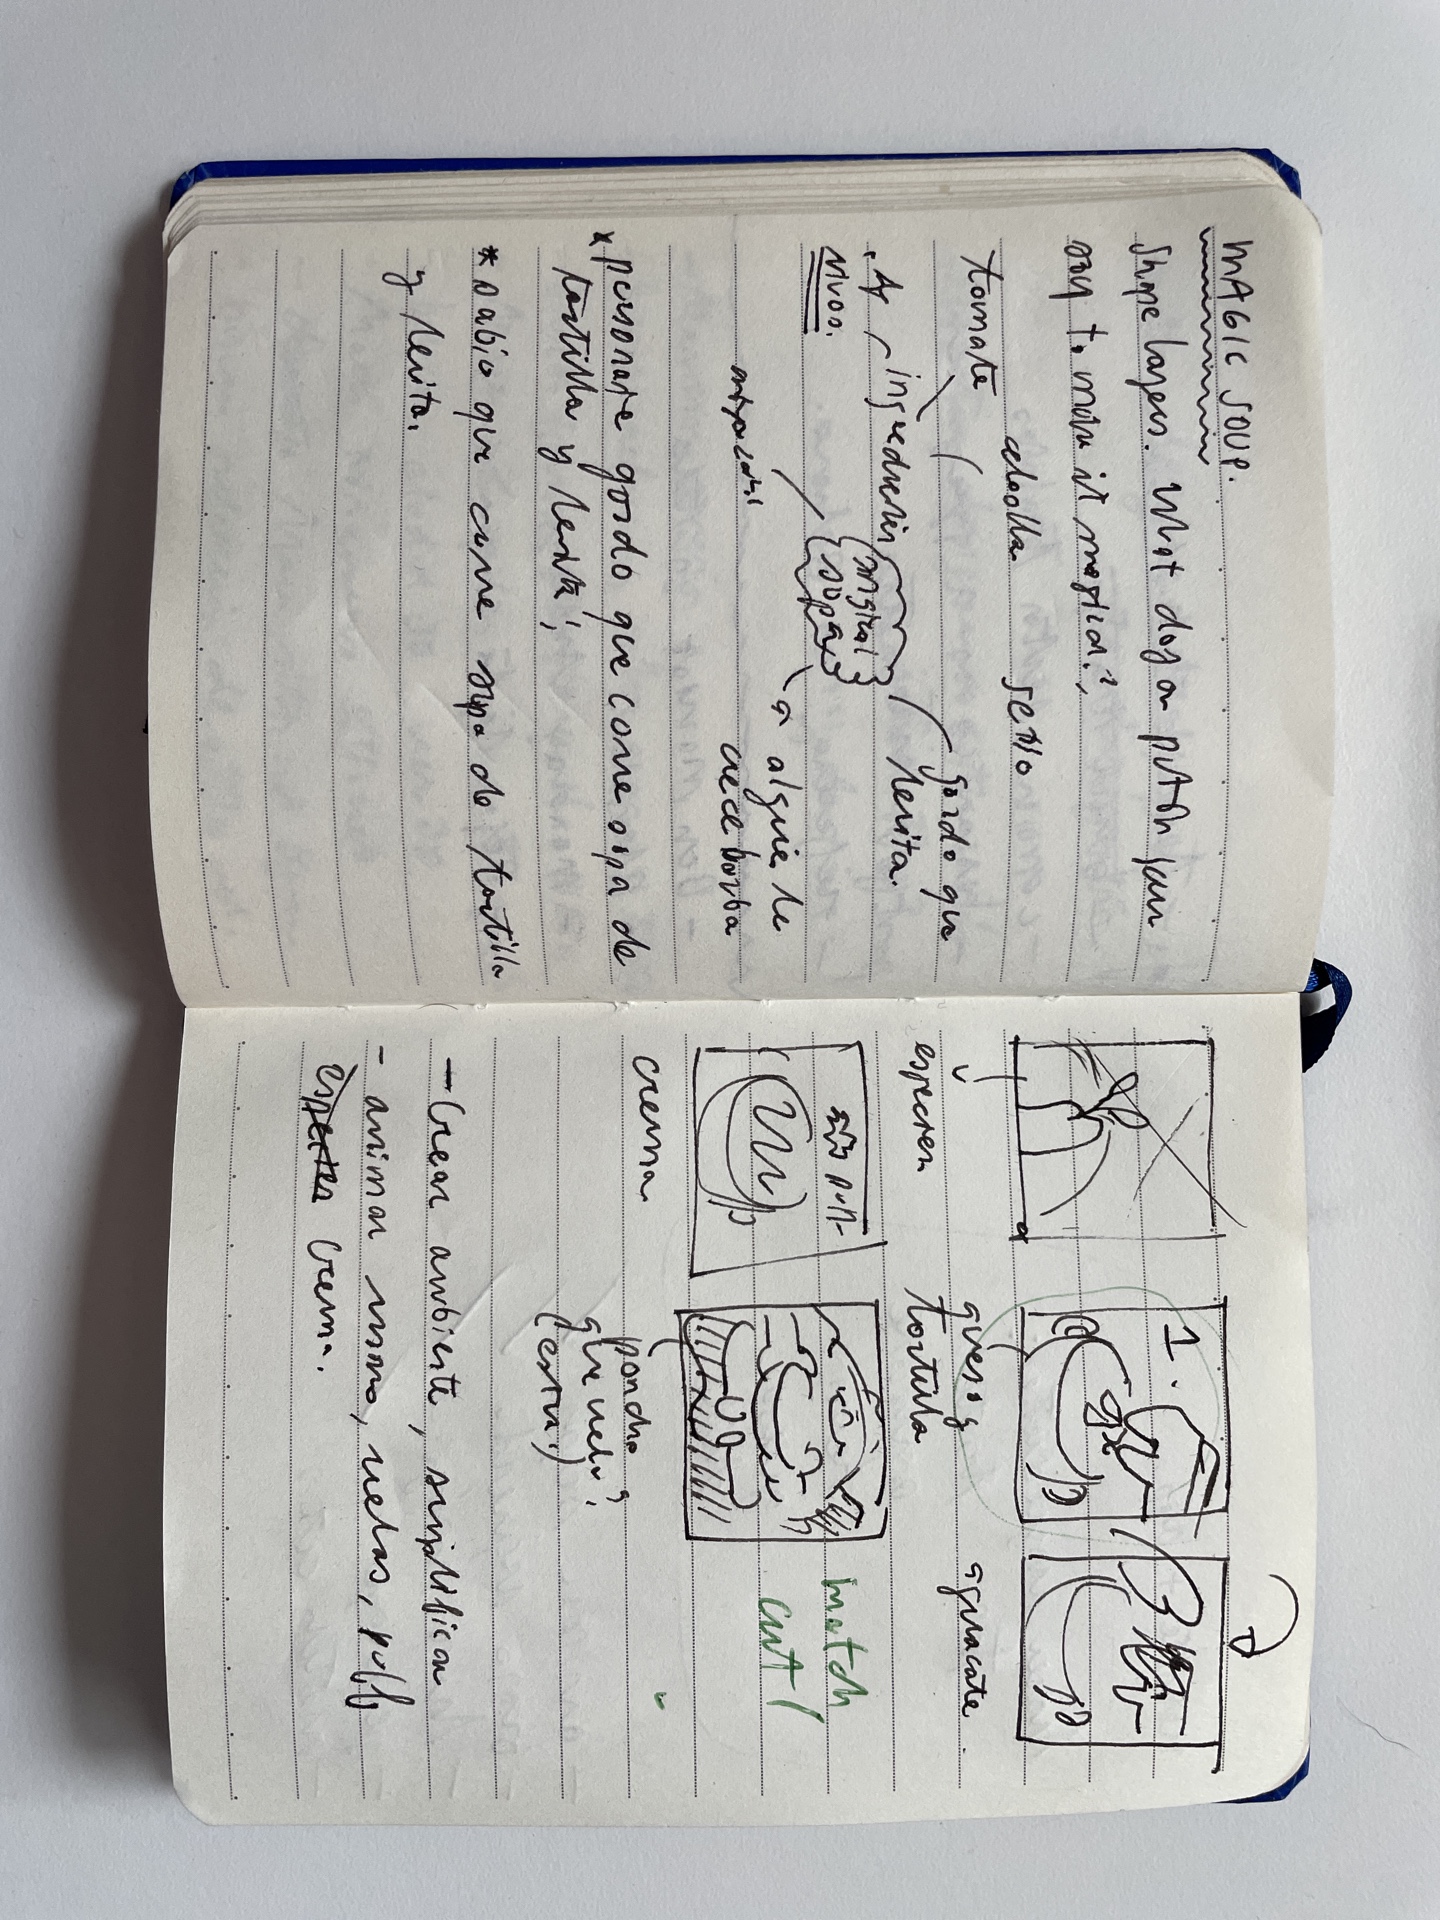 MAGIC SOUP.
Shape layers. What do you put in your
soup to make it magical?
cebolla
setno
tomate
gordo que
levita.
ingredientes
vivos.
magical
sopa
a alguien le
crece barba
* personaje gordo que come sopa de
tortilla y levita!
* sabio que come sopa de tortilla
y levita.
1.
especies
queso y
tortilla
aguacate.
puff
match
cut!
crema
poncho
que vuela?
(extra.)
- Crear ambiente, simplificar
- animar mano, velas, puff
especies crema.